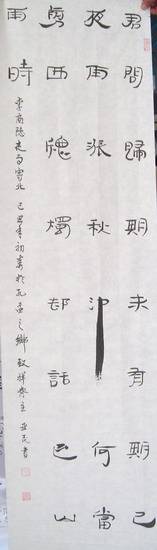 君問歸期未有期巴
山夜雨漲秋池何當
共剪西牕燭却話巴山
夜雨時
李商隱夜雨寄北 己丑年初 於孔孟之鄉 書